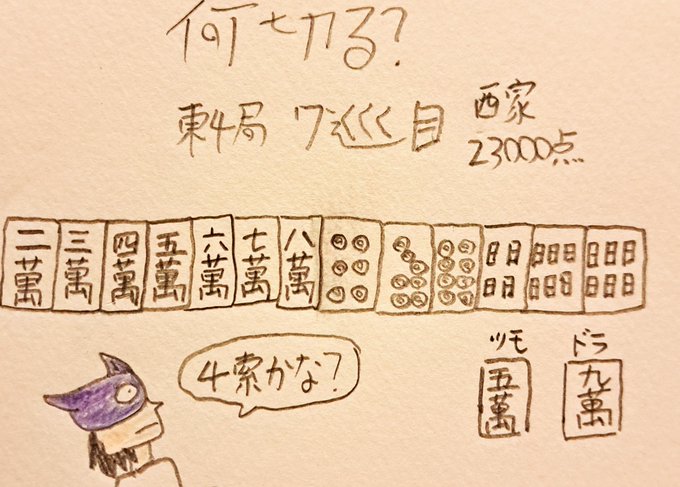 何切る?
東4局 7巡目 西家
23000点
二萬 三萬 四萬 五萬 六萬 七萬 八萬
ツモ ドラ
4索かな?
五萬 九萬